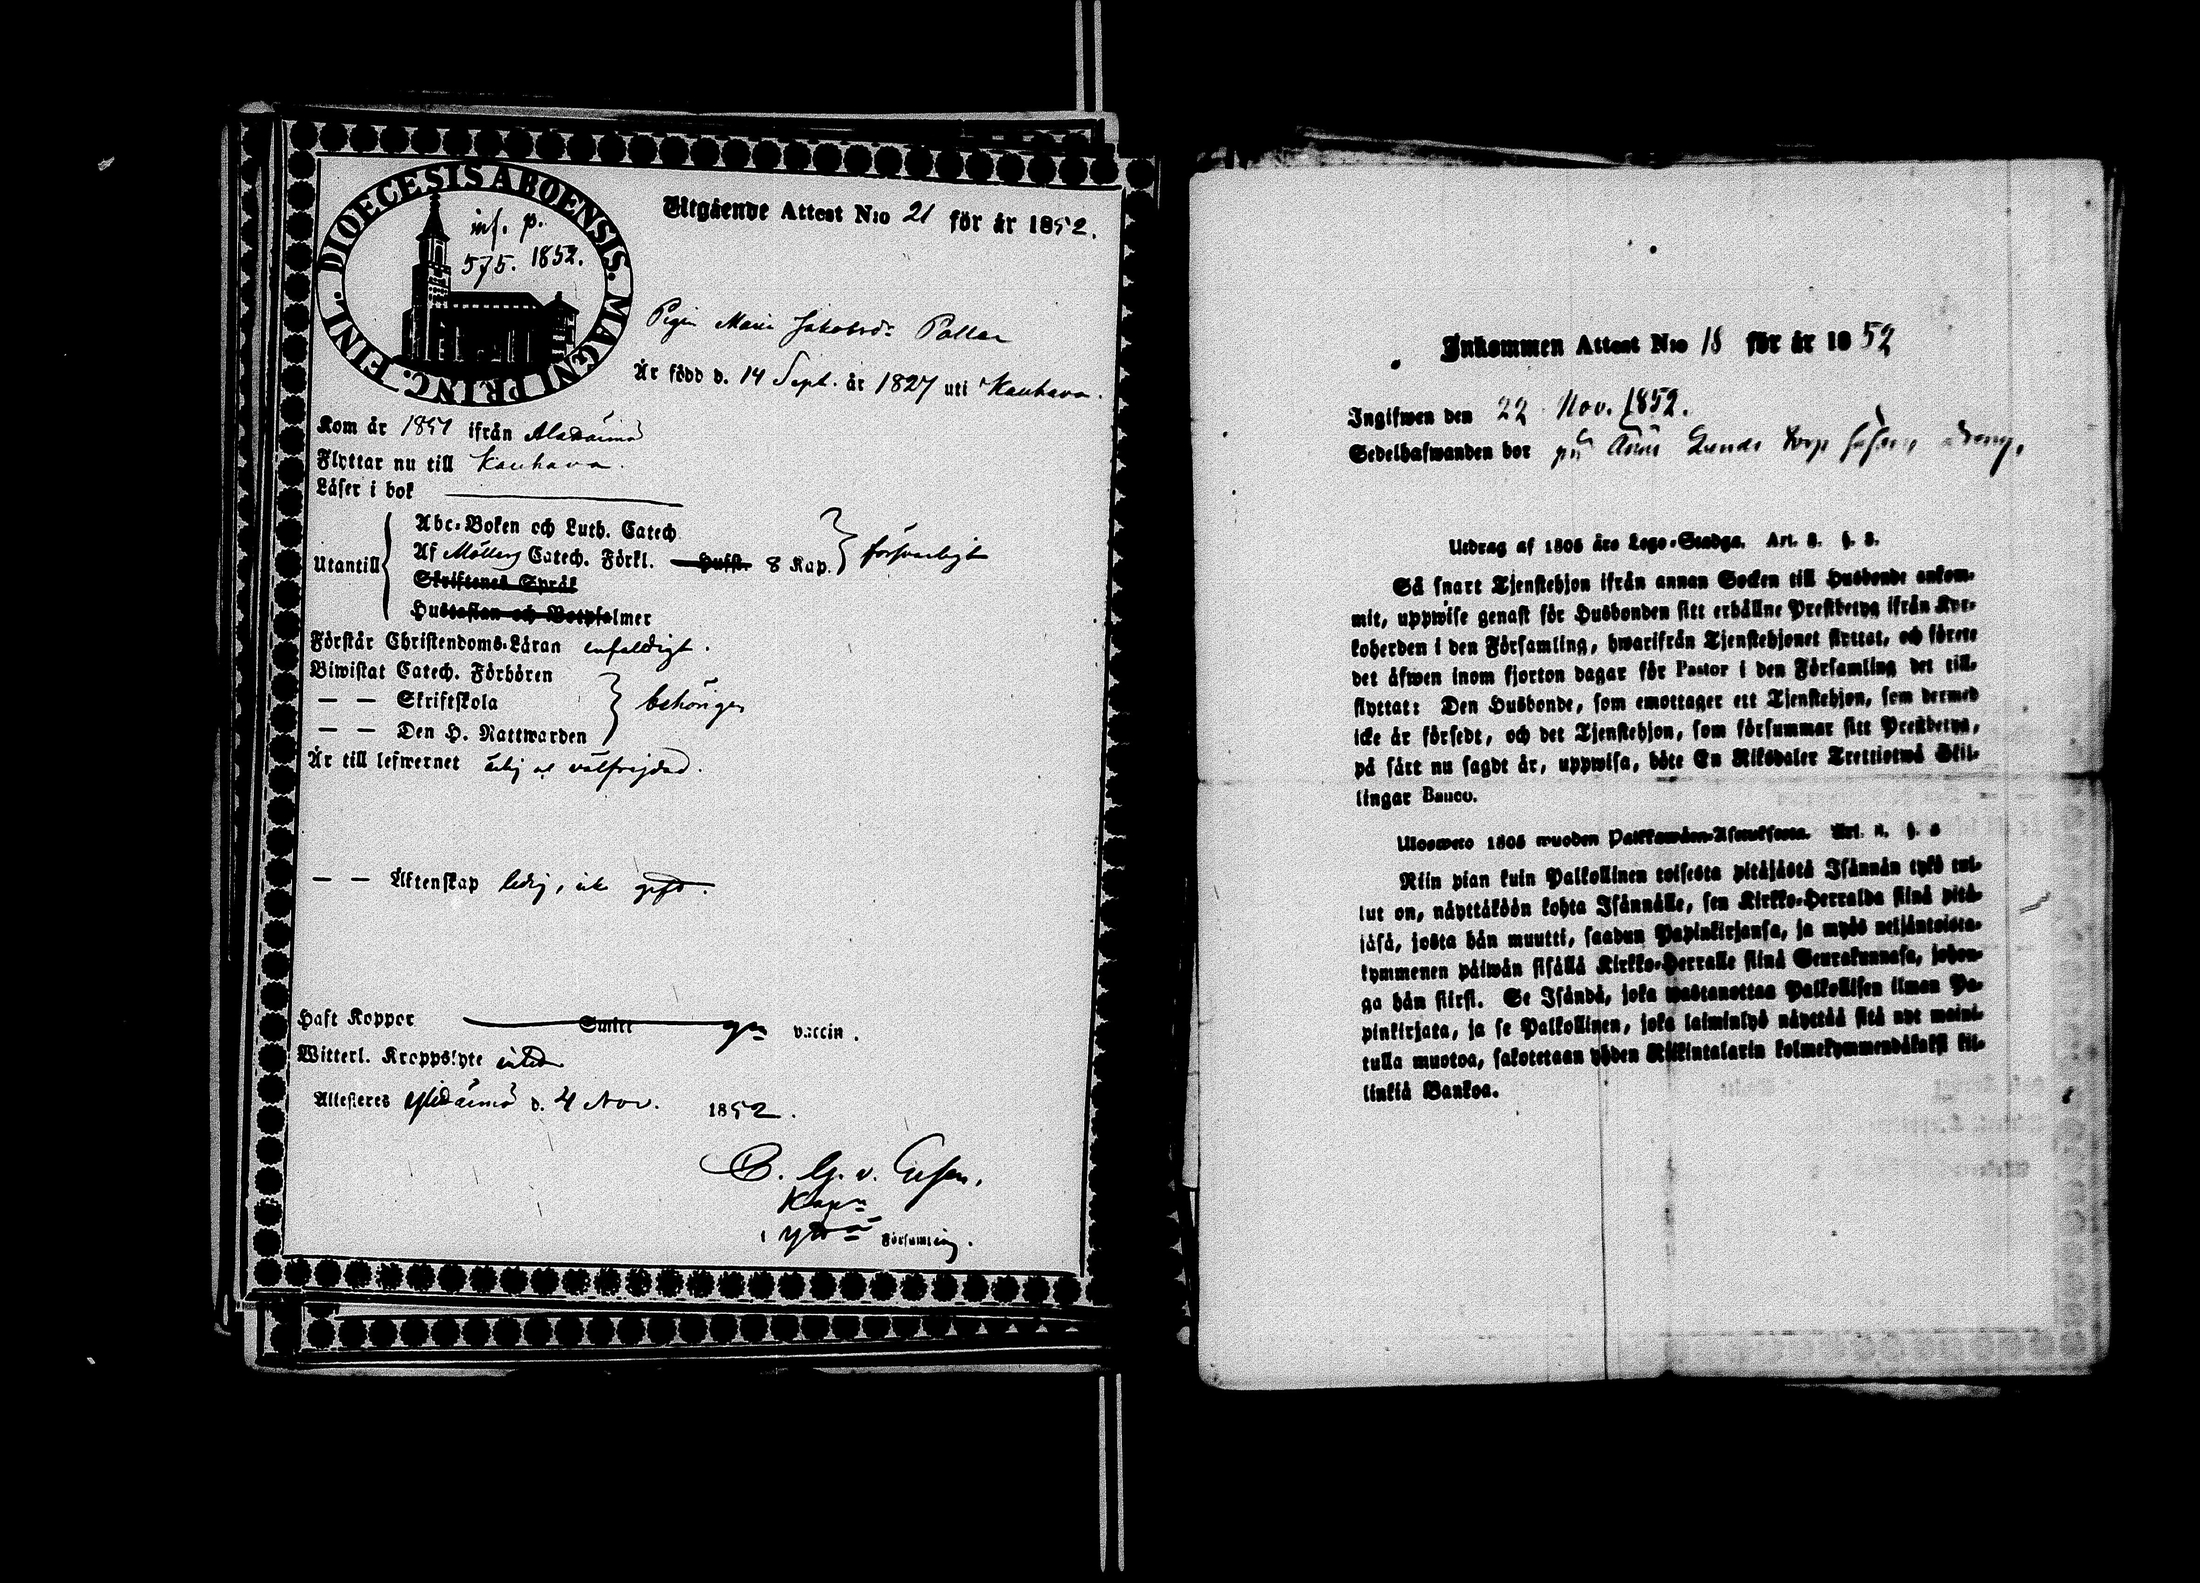 DIOECESIS ABOENSIS. MAGNI PRINC. FINL.
inf. p.
575. 1852.
Utgående Attest N:o 21 för år 1852.
Pigan Maria Jakobsdr Pollar
Är född d. 14 Sept. år 1827 uti Kauhava.
Kom år 1851 ifrån Alahärmä
Flyttar nu till Kauhava.
Läser i bok
Utantill
Abc-Boken och Luth. Catech
Af Möllers Catech. Förkl. Hufst. 8 Kap. försvarligt
Skriftenes Språk
Hustaflan och Botpsalmer
Förstår Christendoms-Läran enfaldigt.
Biwistat Catech. Förhören
— — Skriftskola behörigen
— — Den H. Nattwarden
Är till lefwernet ärlig och välfrejdad.
— — Äktenskap ledig, icke gift.
Haft Koppor Smitt gn vaccin.
Witterl. Kroppslyte utan
Attesteres Ylihärmä d. 4 Nov. 1852.
Kapn
i Församling.
Inkommen Attest N:o 18 för år 1852
Ingifwen den 22 Nov. 1852.
Sedelhafwanden bor på torp
Utdrag af 1805 års Lego-Stadga. Art. 8. §. 8.
Så snart Tjenstehjon ifrån annan Socken till Husbonde ankom-
mit, uppwise genast för Husbonden sitt erhållne Prestbetyg ifrån Kyr-
koherden i den Församling, hwarifrån Tjenstehjonet flyttat, och förete
det äfwen inom fjorton dagar för Pastor i den Församling det till-
flyttat: Den Husbonde, som emottager ett Tjenstehjon, som dermed
icke är försedt, och det Tjenstehjon, som försummar sitt Prestbetyg,
på sätt nu sagdt är, uppwisa, böte En Riksdaler Trettiotwå Skil-
lingar Banco.
Ulosweto 1805 wuoden Palkkawäen-Asetuksesta. Art. 8. §. 8
Niin pian kuin Palkollinen toisesta pitäjästä Isännän tykö tul-
lut on, näyttäköön kohta Isännälle, sen Kirkko-Herralda siinä pitä-
jäsä, josta hän muutti, saadun Papinkirjansa, ja myös neljäntoista-
kymmenen päiwän sisällä Kirkko-Herralle siinä Seurakunnasa, johon-
ga hän siirsi. Se Isändä, joka wastanottaa Palkollisen ilman Pa-
pinkirjata, ja se Palkollinen, joka laiminlyö näyttää sitä nyt maini-
tulla muotoa, sakotetaan yhden Riikintalarin kolmekymmendäkaksi kil-
linkiä Bankoa.